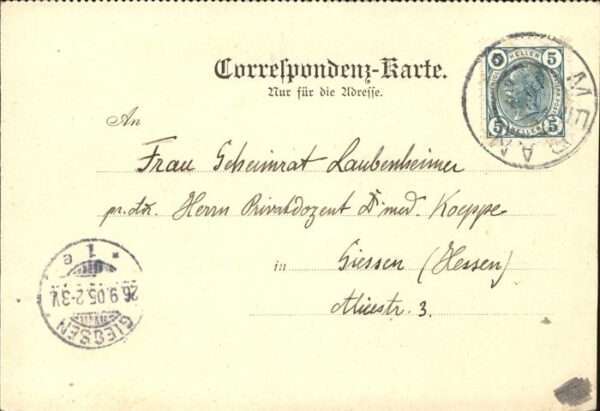 Correspondenz-Karte.
Nur für die Adresse.
5 HELLER 5
5 HELLER 5
MERAN
An
Frau Geheimrat Laubenheimer
pr. Adr. Herrn Privatdozent Dr med. Koeppe
in Giessen (Hessen)
Alicestr. 3.
* 1 e
26.9.05.2-3V.
GIESSEN